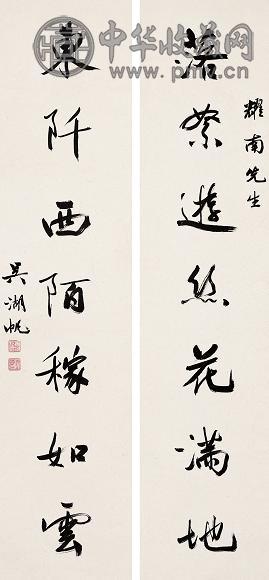 中华收藏网
耀南先生
落絮遊絲花滿地
東阡西陌稼如雲
吳湖帆